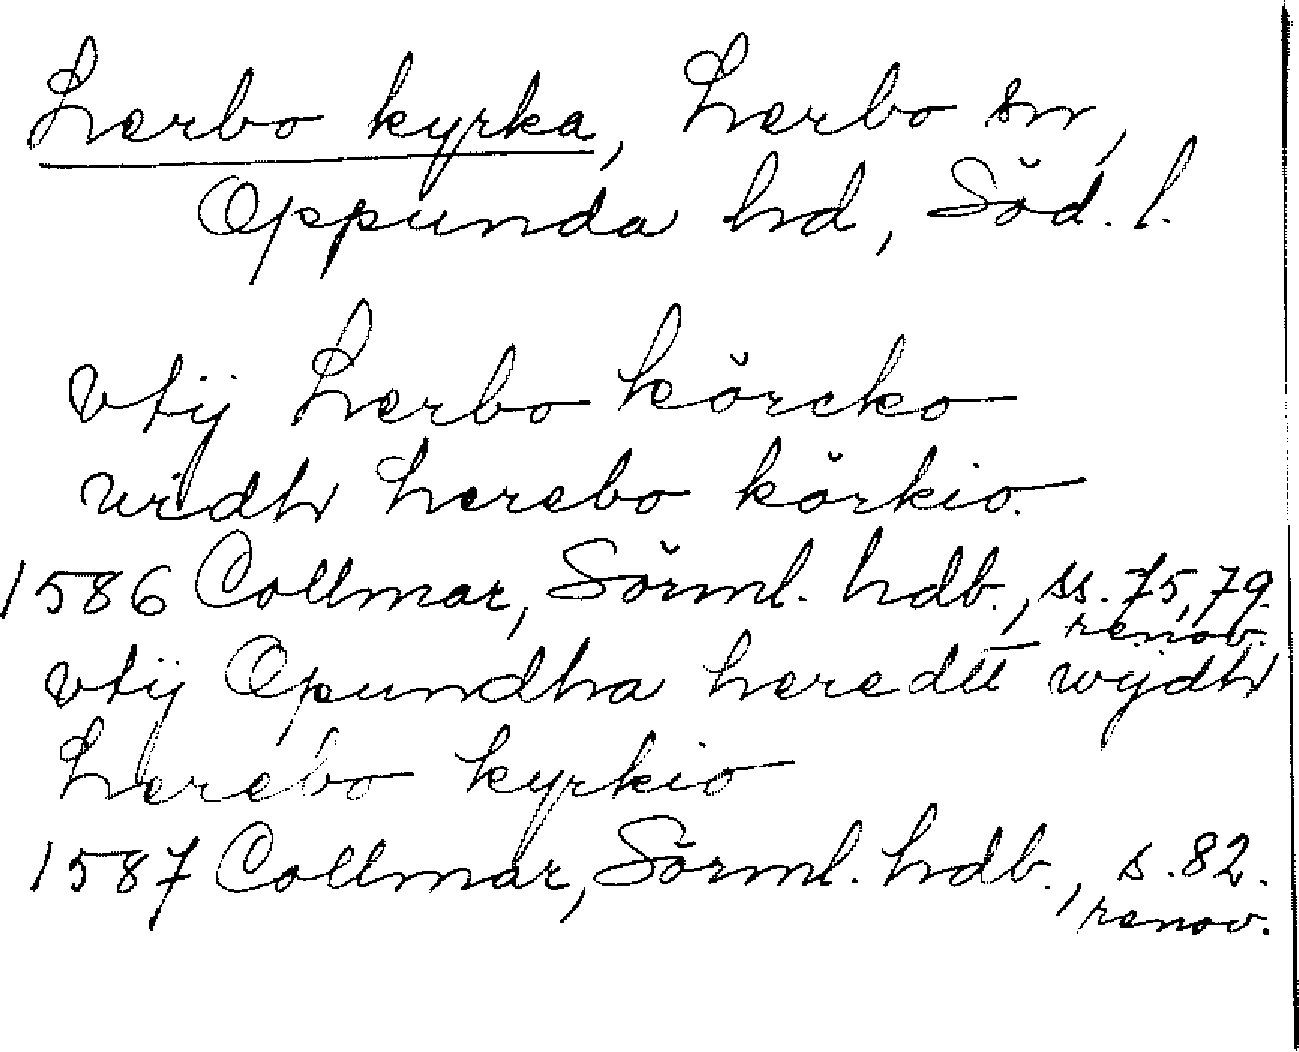 Lerbo kyrka, Lerbo sn,
Oppunda hd, Söd. l.
vtij Lerbo körcko
widh Lerebo körkio.
1586 Collmar, Sörml. hdb., ss. 75, 79.
renov.
vtij Opundha heredtt wijdh
Lerebo kyrkio
1587 Collmar, Sörml. hdb., s. 82.
renov.